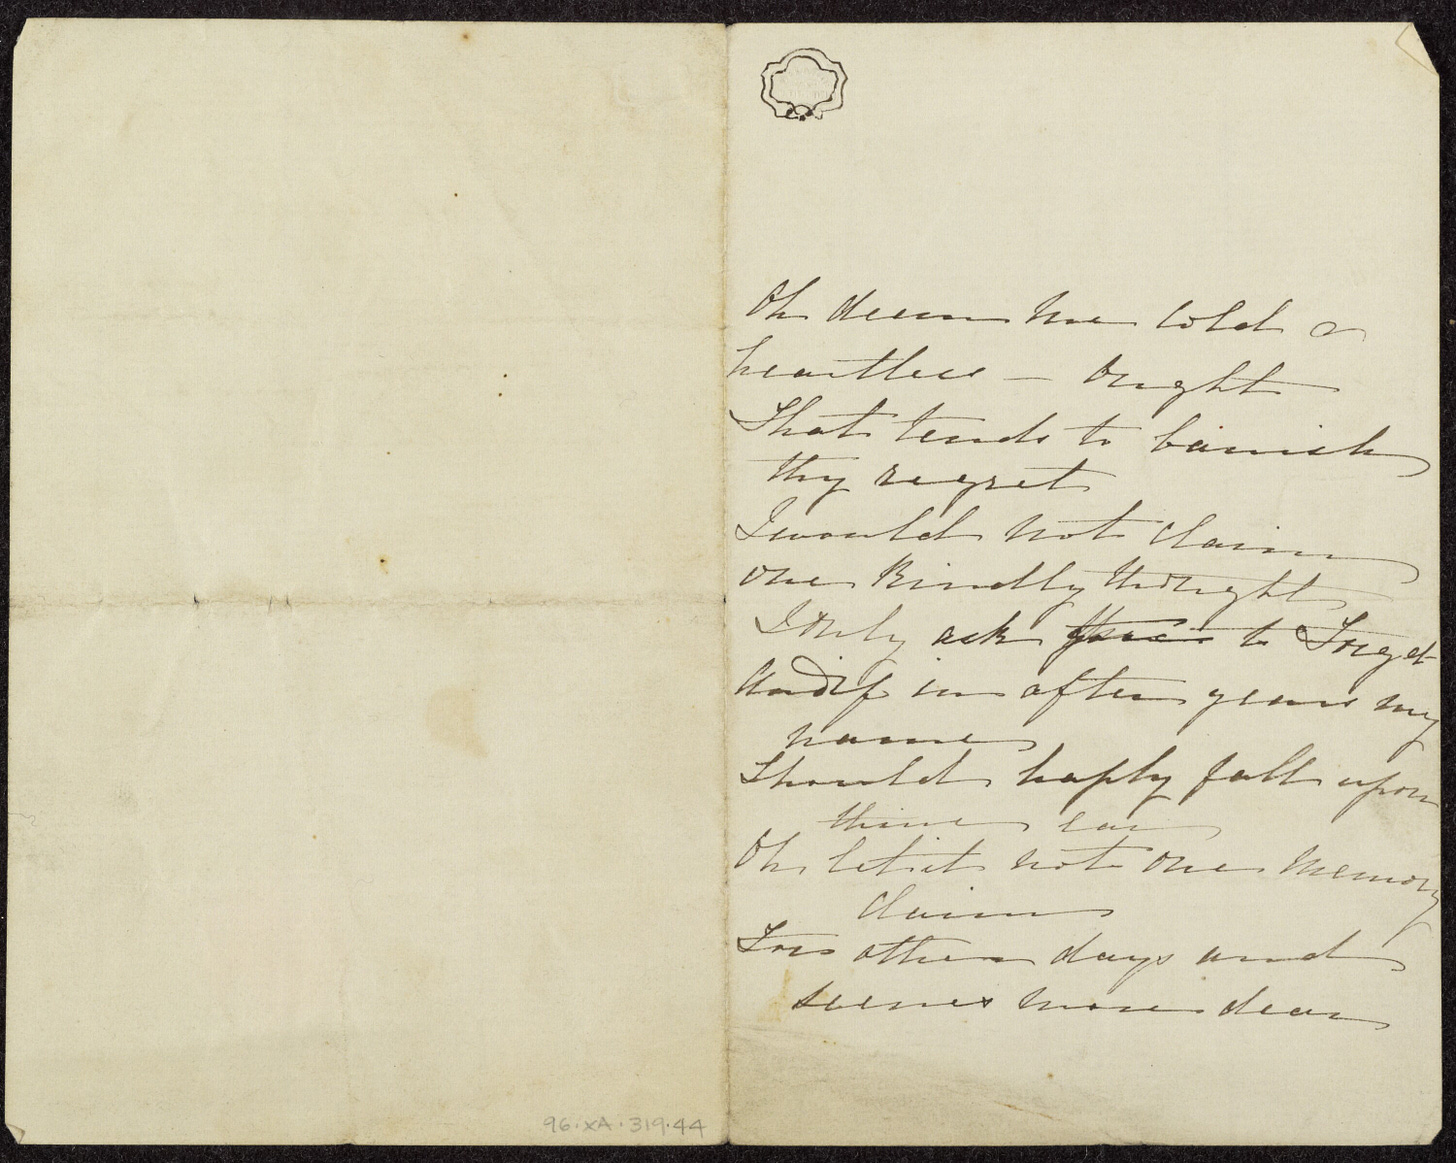 Oh deem me cold &
heartless — ought
That tends to banish
thy regret
I would not claim
one kindly thought
I only ask to Forget
And if in after years my
name
Should haply fall upon
thine ear
Oh let it not one memory
claim
From other days and
scenes more dear
96.XA.319.44